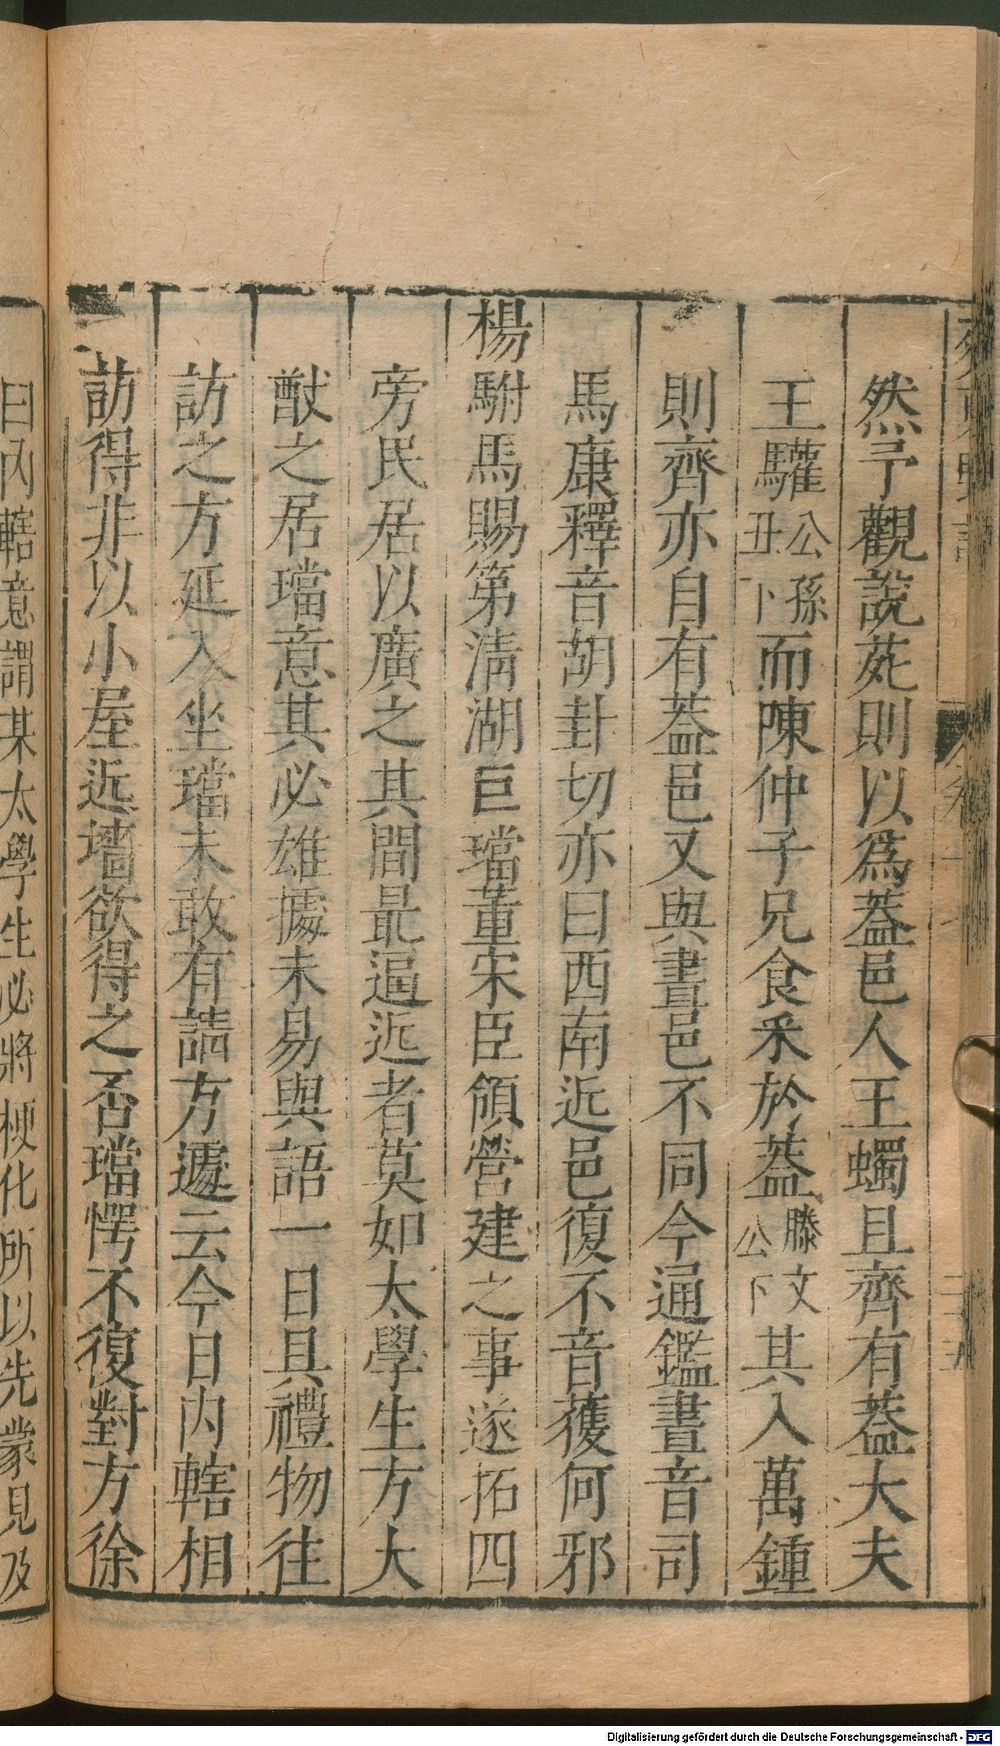 然予觀說苑則以爲葢邑人王蠋且齊有葢大夫
王驩公孫丑下而陳仲子兄食采於葢滕文公下其入萬鍾
則齊亦自有葢邑又與晝邑不同今通鑑晝音司
馬康釋音胡卦切亦曰西南近邑復不音獲何邪
楊駙馬賜第淸湖巨璫董宋臣領營建之事遂拓四
旁民居以廣之其間最逼近者莫如太學生方大
猷之居璫意其必雄據未易與語一日具禮物往
訪之方延入坐璫未敢有請方遽云今日內轄相
訪得非以小屋近墻欲得之否璫愕不復對方徐
曰內轄意謂某太學生必將梗化所以先蒙見及
Digitalisierung gefördert durch die Deutsche Forschungsgemeinschaft - DFG